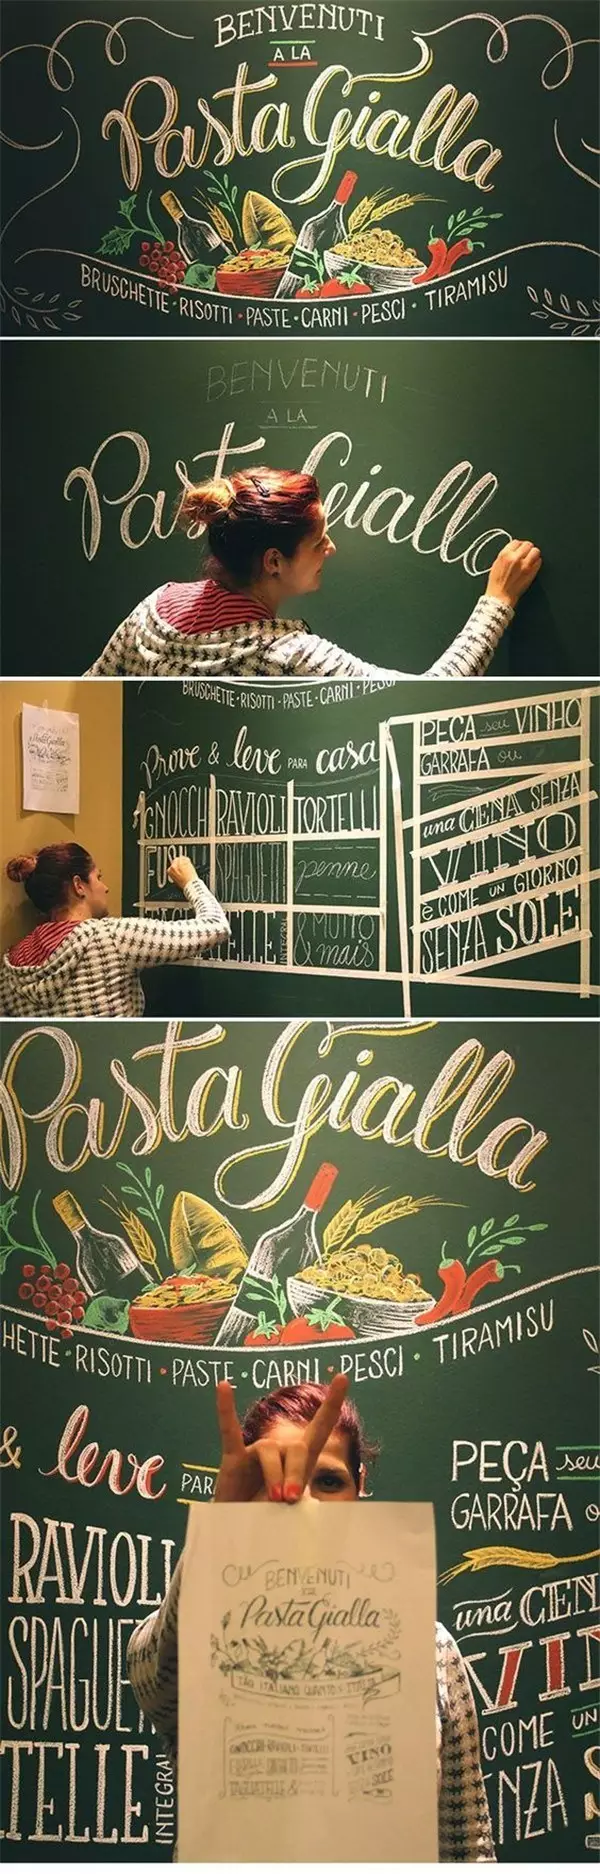 BENVENUTI
A LA
Pasta Gialla
BRUSCHETTE · RISOTTI · PASTE · CARNI · PESCI · TIRAMISU
BENVENUTI
A LA
Pasta Gialla
BRUSCHETTE · RISOTTI · PASTE · CARNI · PESCI
Pasta Gialla
Prove & leve PARA casa
GNOCCHI RAVIOLI TORTELLI
FUSI SPAGUETTI penne
TAGLIATELLE INTEGRAL & MUITO mais
PEÇA seu VINHO
GARRAFA ou
una CENA SENZA
VINO
è COME UN GIORNO
SENZA SOLE
Pasta Gialla
HETTE · RISOTTI · PASTE · CARNI · PESCI · TIRAMISU
& leve PARA
RAVIOLI
SPAGUET
TELLE INTEGRAL
PEÇA seu
GARRAFA o
una CEN
VIN
COME UN
NZA S
BENVENUTI
Pasta Gialla
TÃO ITALIANO QUANTO A ITÁLIA
GNOCCHI RAVIOLI TORTELLI
TAGLIATELLE &
VINO
SOLE